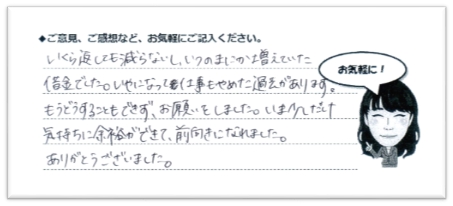 ◆ご意見、ご感想など、お気軽にご記入ください。
いくら返しても減らないし、いつのまにか増えていた
借金でした。いやになって仕事もやめた過去があります。
もうどうすることもできず、お願いをしました。いま少しだけ
気持ちに余裕ができて、前向きになれました。
ありがとうございました。
お気軽に！